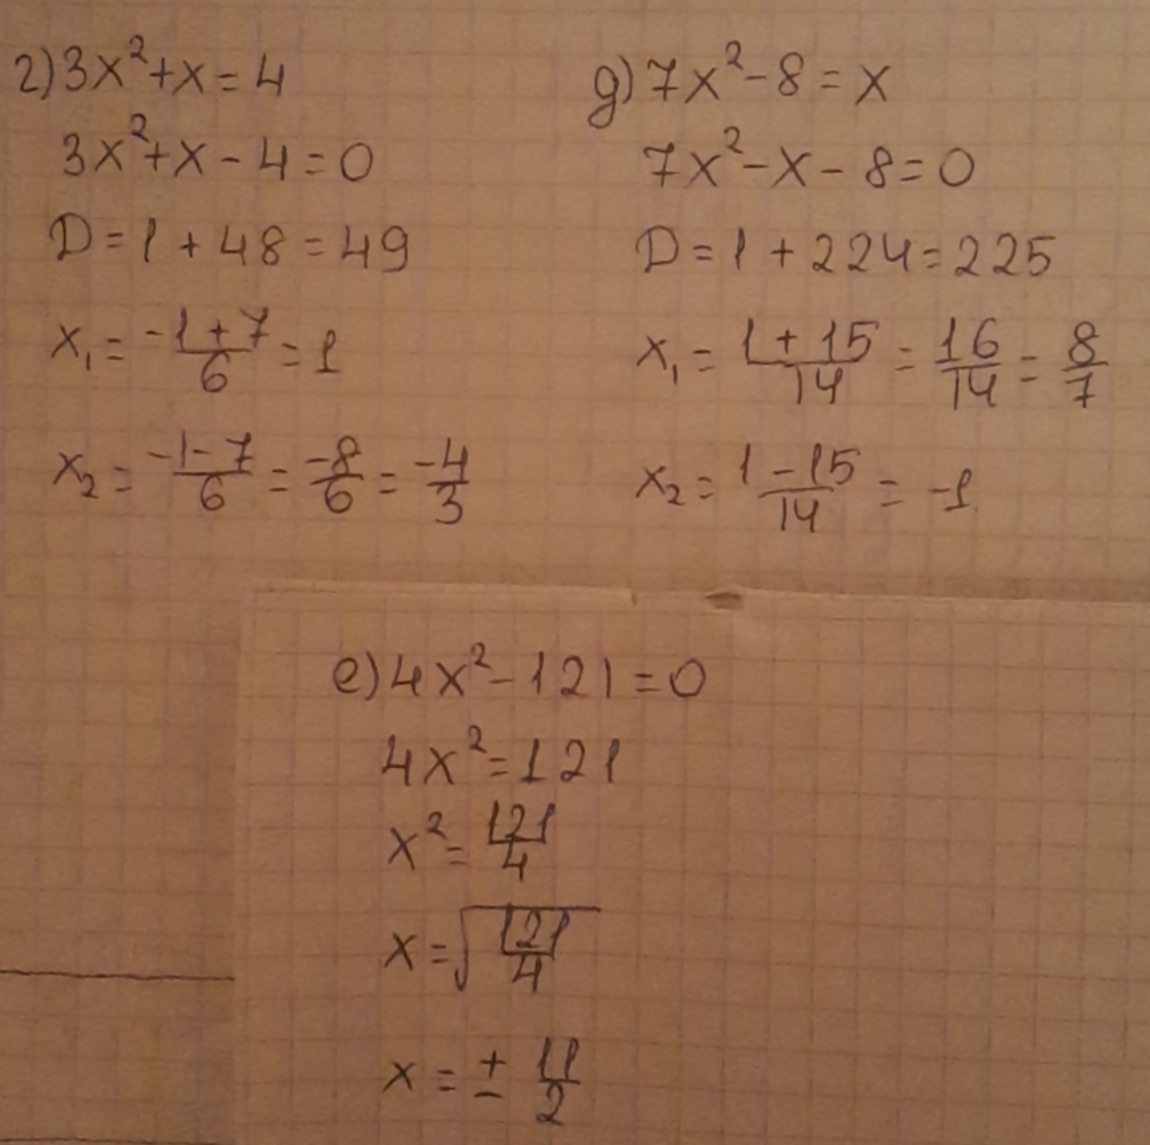 г) 3x² + x = 4
3x² + x - 4 = 0
D = 1 + 48 = 49
x₁ = (-1 + 7)/6 = 1
x₂ = (-1 - 7)/6 = -8/6 = -4/3
д) 7x² - 8 = x
7x² - x - 8 = 0
D = 1 + 224 = 225
x₁ = (1 + 15)/14 = 16/14 = 8/7
x₂ = (1 - 15)/14 = -1
е) 4x² - 121 = 0
4x² = 121
x² = 121/4
x = √(121/4)
x = ± 11/2